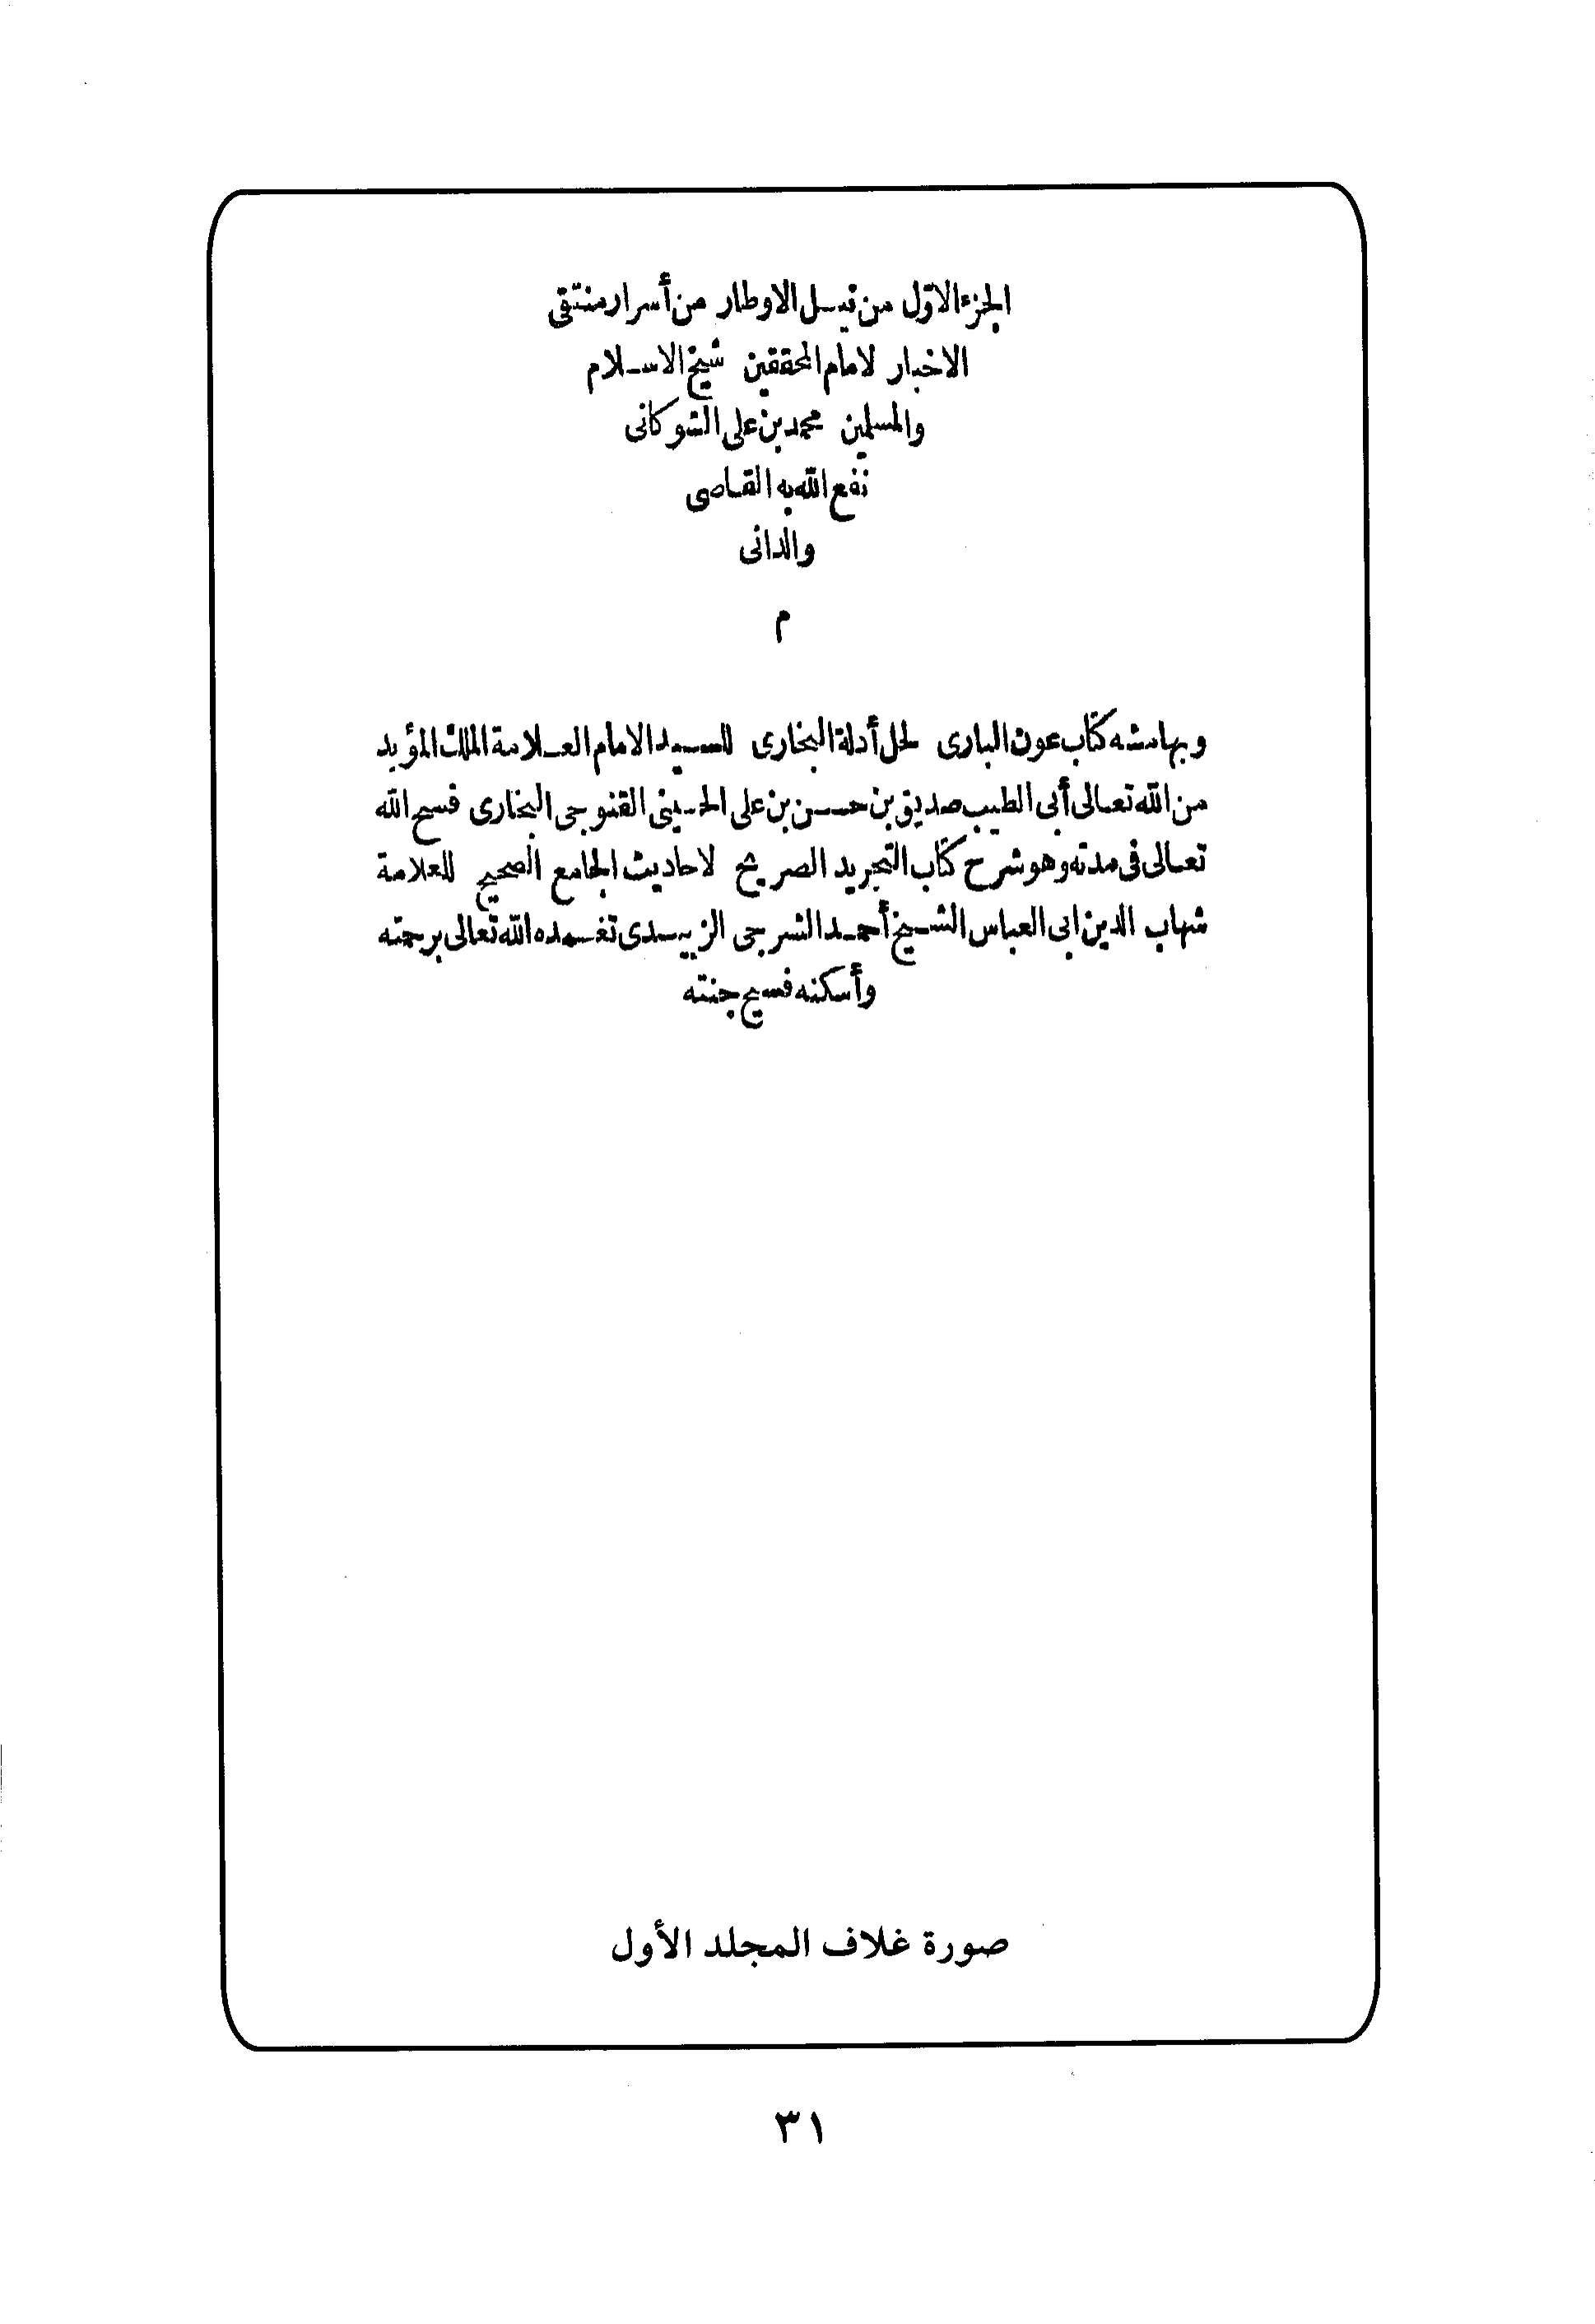 الجزء الاوّل من نيل الاوطار من أسرار منتقى
الاخبار لامام المحققين شيخ الاسلام
والمسلمين محمد بن على الشوكانى
نفع الله به القاصى
والدانى
م
وبهامشه كتاب عون البارى لحل أدلة البخارى للسيد الامام العلامة الملك المؤيد
من الله تعالى أبى الطيب صديق بن حسن بن على الحسينى القنوجى البخارى فسح الله
تعالى فى مدته وهو شرح كتاب التجريد الصريح لاحاديث الجامع الصحيح للعلامة
شهاب الدين ابى العباس الشيخ أحمد الشرجى الزبيدى تغمده الله تعالى برحمته
وأسكنه فسيح جنته
صورة غلاف المجلد الأول
٣١